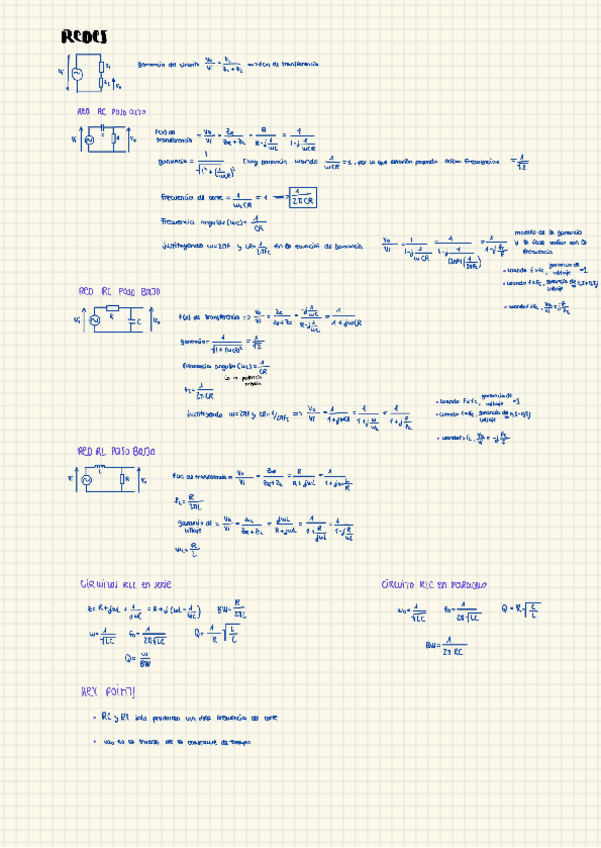 REDES
ganancia del circuito Vo/Vi = Z2/(Z1+Z2) => f(x) de transferencia
RED RC PASO ALTO
f(x) de transferencia = Vo/Vi = ZR/(ZR+ZC) = R/(R-j 1/ωC) = 1/(1-j 1/ωCR)
ganancia = 1/√(1²+(1/ωCR)²) (hay ganancia cuando 1/ωCR = 1, por lo que estarán pasando estas frecuencias = 1/√2
Frecuencia de corte = 1/ωCR = 1 => 1/2πCR
Frecuencia angular (ωc) = 1/CR
sustituyendo ω=2πf y CR= 1/2πfc en la ecuación de ganancia
modelo de la ganancia y la fase varían con la frecuencia
• cuando f>fc, ganancia de voltaje =1
• cuando f=fc, ganancia de voltaje =
• cuando f<fc, Vo/Vi =
RED RC PASO BAJO
R
C
f(x) de transferencia => Vo/Vi = ZC/(ZR+ZC) = (-j 1/ωC)/(R-j 1/ωC) = 1/(1+jωCR)
ganancia =
Frecuencia angular (ωc) = 1/CR
fc = 1/2πCR
sustituyendo ω=2πf y CR=1/2πfc => Vo/Vi = 1/(1+jωCR) = 1/(1+j ω/ωc) = 1/(1+j f/fc)
• cuando f<fc, ganancia de voltaje =1
• cuando f=fc, ganancia de voltaje = 0,5-0,5j
• cuando f>fc, Vo/Vi = -j fc/f
RED RL PASO BAJO
L
R
f(x) de transferencia = Vo/Vi = ZR/(ZR+ZL) = R/(R+jωL) = 1/(1+jω L/R)
fc = R/2πL
ganancia de voltaje = Vo/Vi = ZL/(ZR+ZL) = jωL/(R+jωL) = 1/(1+R/jωL) = 1/(1-j R/ωL)
ωc = R/L
CIRCUITOS RLC en serie
Z= R+jωL + 1/jωC = R+j(ωL - 1/ωC) BW= R/2πL
ω= 1/√LC fo= 1/2π√LC Q= 1/R √L/C
Q= ω/BW
CIRCUITO RLC en paralelo
ωo= 1/√LC fo= 1/2π√LC Q= R√C/L
BW= 1/2πRC
KEY POINT!
• RC y RL solo producen una frecuencia de corte
• ωo es la inversa de la constante de tiempo